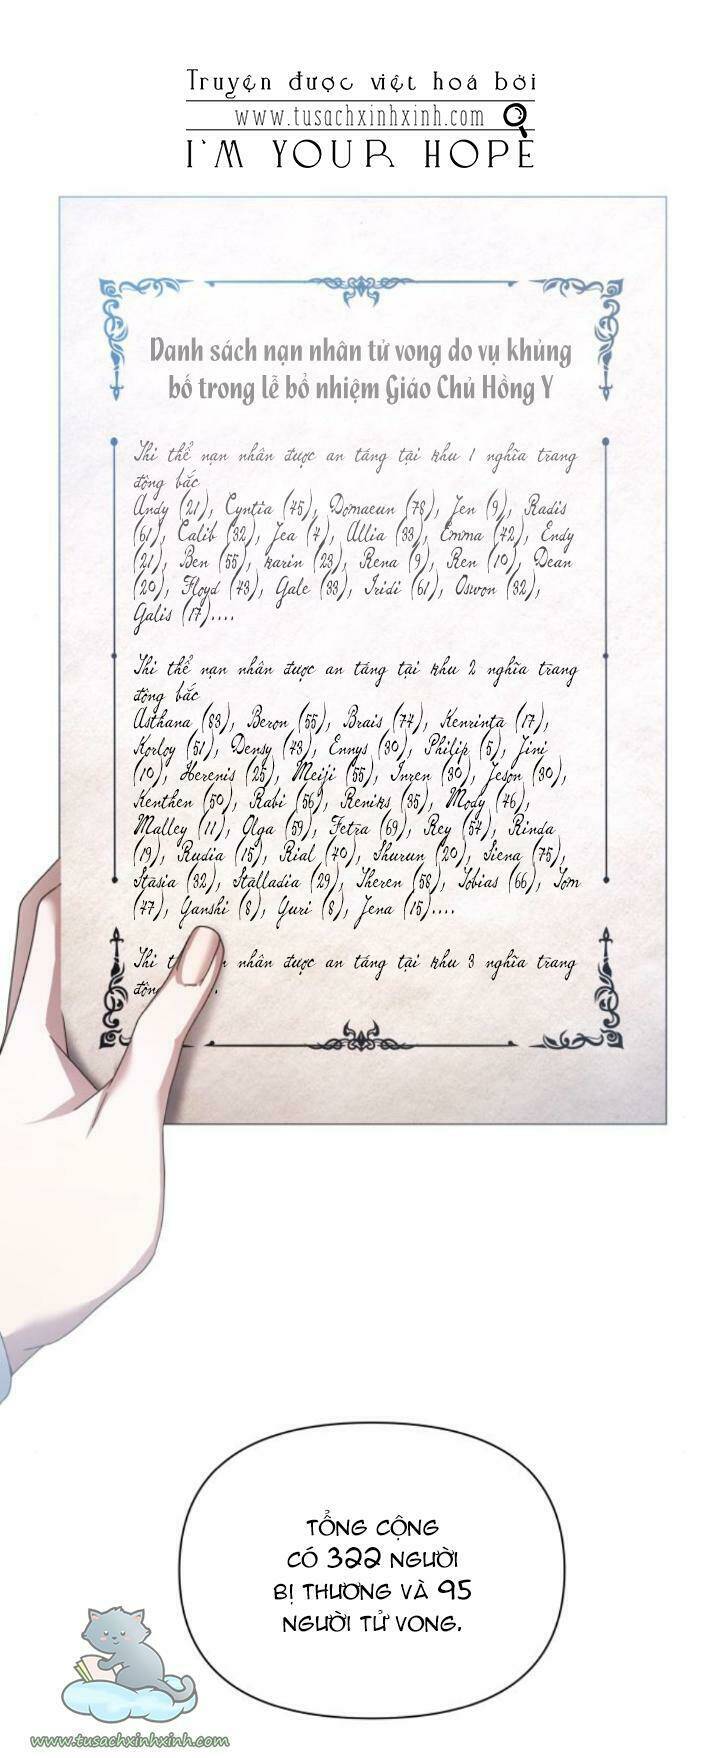 Truyện được việt hoá bởi
www.tusachxinhxinh.com
I'M YOUR HOPE
Danh sách nạn nhân tử vong do vụ khủng
bố trong lễ bổ nhiệm Giáo Chủ Hồng Y
Thi thể nạn nhân được an táng tại khu 1 nghĩa trang
đông bắc
Andy (21), Cyntia (45), Domaeun (78), Jen (9), Radis
(61), Calib (32), Jea (4), Allia (33), Emma (42), Endy
(21), Ben (55), karin (23), Rena (9), Ren (10), Dean
(20), Floyd (43), Gale (33), Iridi (61), Oswon (32),
Galis (17)....
Thi thể nạn nhân được an táng tại khu 2 nghĩa trang
đông bắc
Asthana (83), Beron (55), Brais (74), Kenrinta (17),
Korloy (51), Densy (43), Ennys (30), Philip (5), Jini
(10), Herenis (25), Meiji (55), Inren (30), Jeson (30),
Kenthen (50), Rabi (56), Reniks (35), Mody (46),
Malley (11), Olga (59), Fetra (69), Rey (54), Rinda
(19), Rudia (15), Rial (40), Shurun (20), Siena (75),
Stasia (32), Stalladia (29), Theren (58), Tobias (66), Tom
(47), Ganshi (8), Yuri (8), Jena (15)....
Thi nhân được an táng tại khu 3 nghĩa trang
TỔNG CỘNG
CÓ 322 NGƯỜI
BỊ THƯƠNG VÀ 95
NGƯỜI TỬ VONG.
www.tusachxinhxinh.com